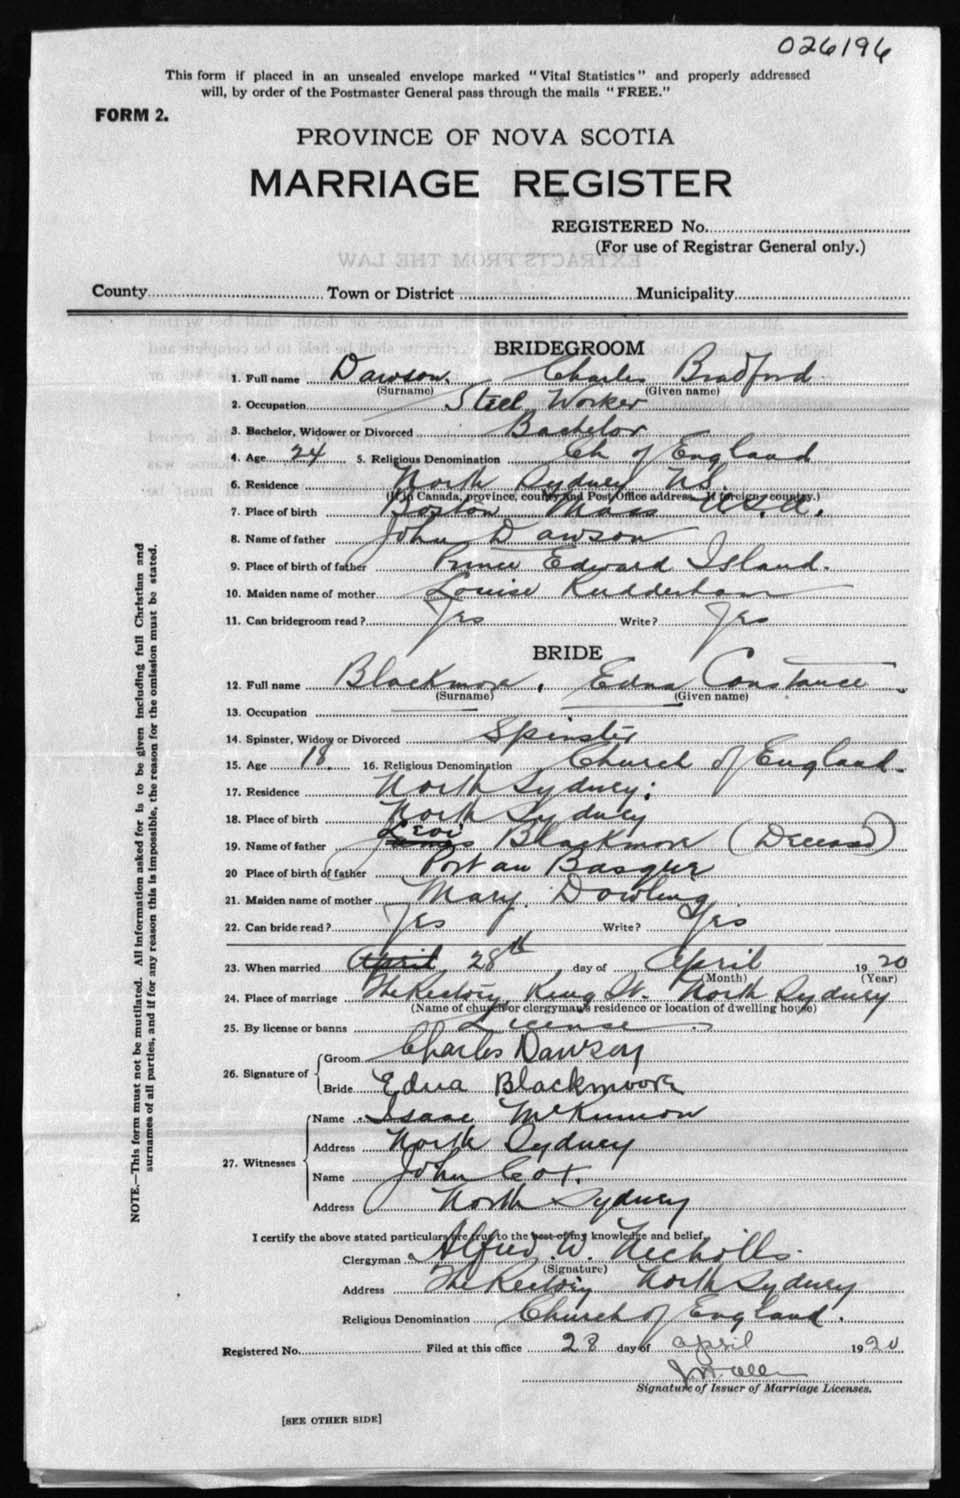 026196
This form if placed in an unsealed envelope marked "Vital Statistics" and properly addressed
will, by order of the Postmaster General pass through the mails "FREE."
FORM 2.
PROVINCE OF NOVA SCOTIA
MARRIAGE REGISTER
REGISTERED No.
(For use of Registrar General only.)
EXTRACTS FROM THE LAW
County Town or District Municipality
BRIDEGROOM
1. Full name Dawson, Charles Bradford
(Surname) (Given name)
2. Occupation Steel Worker
3. Bachelor, Widower or Divorced Bachelor
4. Age 24 5. Religious Denomination Ch of England
6. Residence North Sydney N.S.
(If in Canada, province, county and Post Office address. If foreign, country.)
7. Place of birth Boston Mass U.S.A.
8. Name of father John Dawson
9. Place of birth of father Prince Edward Island.
10. Maiden name of mother Louise Rudderham
11. Can bridegroom read? Yes Write? Yes
BRIDE
12. Full name Blackmore, Edna Constance
(Surname) (Given name)
13. Occupation
14. Spinster, Widow or Divorced Spinster
15. Age 18. 16. Religious Denomination Church of England.
17. Residence North Sydney;
18. Place of birth North Sydney
Levi
19. Name of father James Blackmore (Deceased)
20 Place of birth of father Port au Basque
21. Maiden name of mother Mary Dowling
22. Can bride read? Yes Write? Yes
23. When married April 28th day of April 1920
(Month) (Year)
24. Place of marriage The Rectory, King St. North Sydney
(Name of church or clergyman's residence or location of dwelling house)
25. By license or banns License
26. Signature of Groom Charles Dawson
Bride Edna Blackmoore
27. Witnesses Name Isaac McKinnon
Address North Sydney
Name John Cox.
Address North Sydney
I certify the above stated particulars are true to the best of my knowledge and belief,
Clergyman Alfred W. Nicholls.
(Signature)
Address The Rectory North Sydney
Religious Denomination Church of England.
Registered No. Filed at this office 28 day of april 1920
Signature of Issuer of Marriage Licenses.
[SEE OTHER SIDE]
NOTE.—This form must not be mutilated. All information asked for is to be given including full Christian and
surnames of all parties, and if for any reason this is impossible, the reason for the omission must be stated.